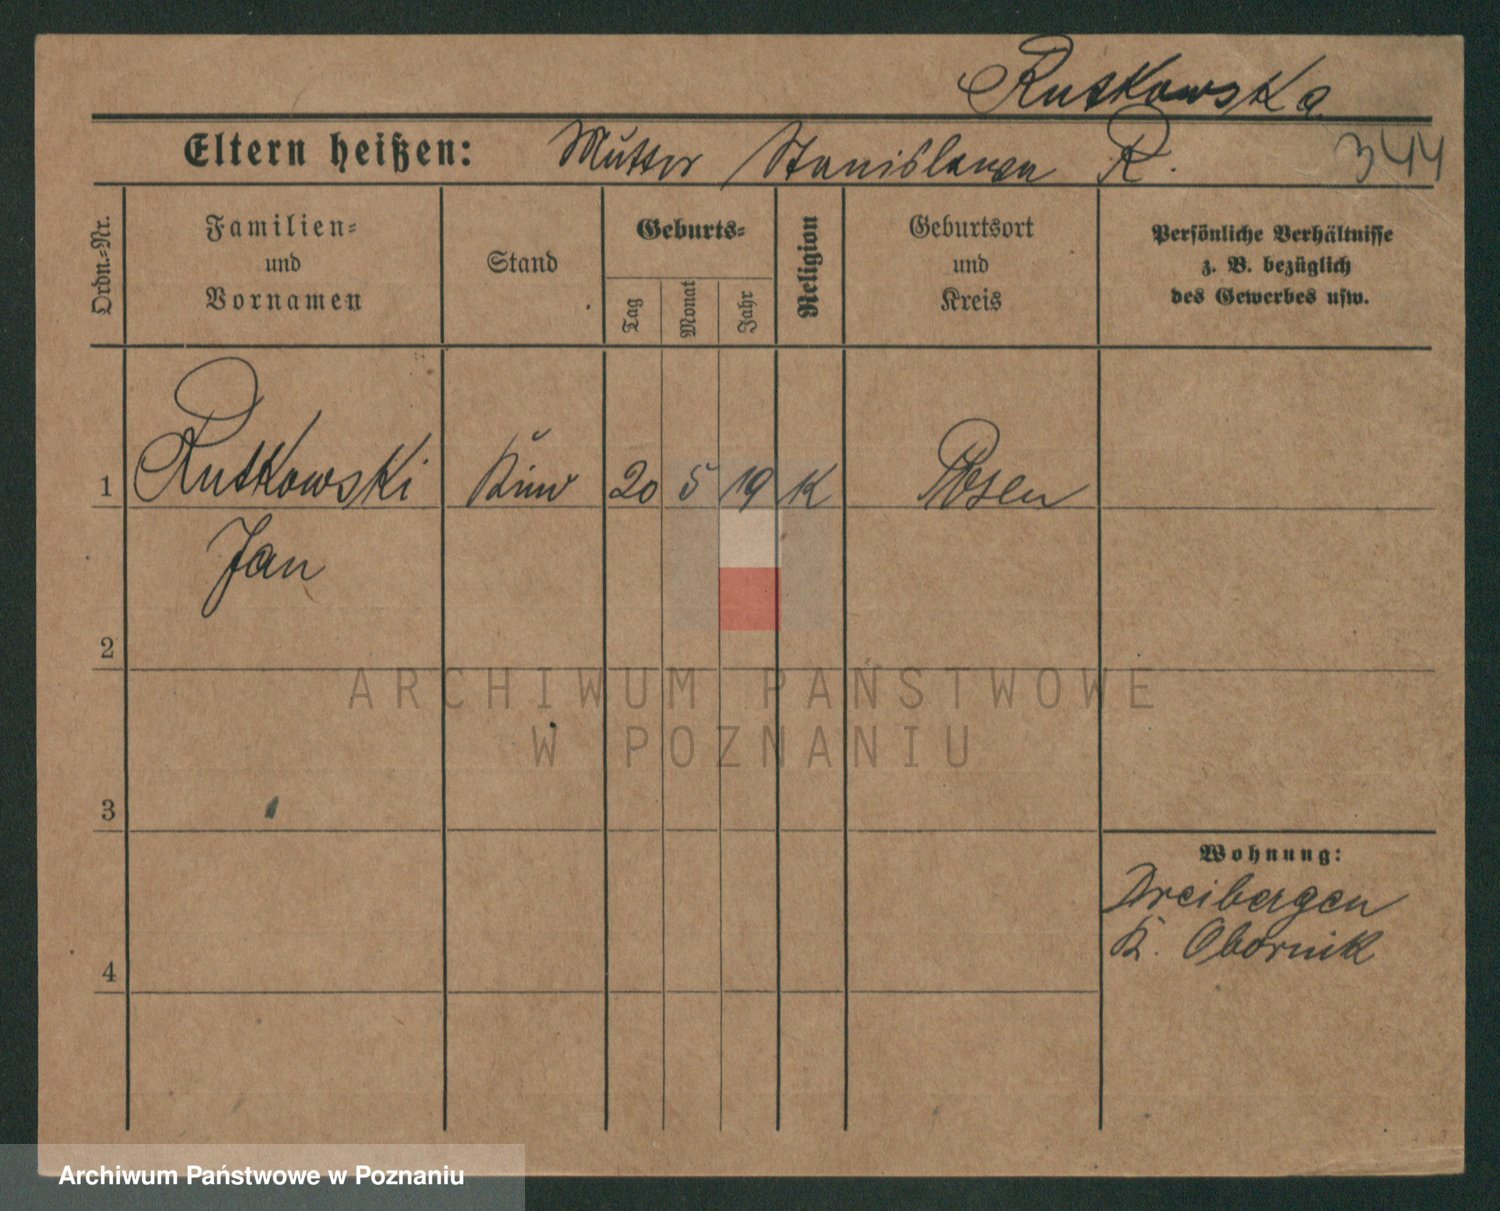 Rutkowska
Eltern heißen: Mutter Stanislawa R. 344
Ordn.-Nr.
Familien-
und
Vornamen
Stand
Geburts-
Tag
Monat
Jahr
Religion
Geburtsort
und
Kreis
Persönliche Verhältnisse
z. B. bezüglich
des Gewerbes usw.
1 Rutkowski 20 5 19 K Posen
Jan
2
ARCHIWUM PAŃSTWOWE
W POZNANIU
3
Wohnung:
Dreibergen
K. Obornik
4
Archiwum Państwowe w Poznaniu